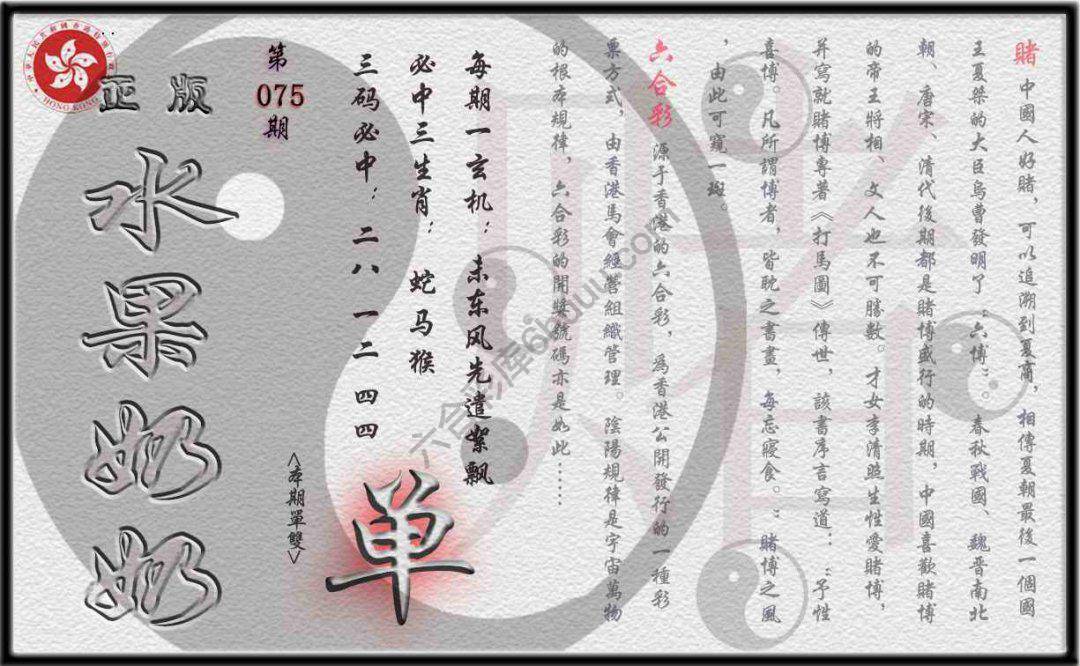 賭 中國人好賭，可以追溯到夏商，相傳夏朝最後一個國
王夏桀的大臣烏曹發明了“六博”。春秋戰國、魏晉南北
朝、唐宋、清代後期都是賭博盛行的時期，中國喜歡賭博
的帝王將相、文人也不可勝數。才女李清照生性愛賭博，
并寫就賭博專著《打馬圖》傳世，該書序言寫道：“予性
喜博。凡所謂博者，皆耽之晝，每忘寢食。”賭博之風
，由此可窺一斑。
六合彩 源于香港的六合彩，為香港公開發行的一種彩
票方式，由香港馬會經營組織管理。陰陽規律是宇宙萬物
的根本規律，六合彩的開獎號碼亦是如此……
每期一玄机：未东风先遣絮飘
必中三生肖：蛇马猴
三码必中：二八 一二 四四
单
<本期單雙>
第
075
期
正版
水果奶奶
HONG KONG
六合彩库6huuu.com